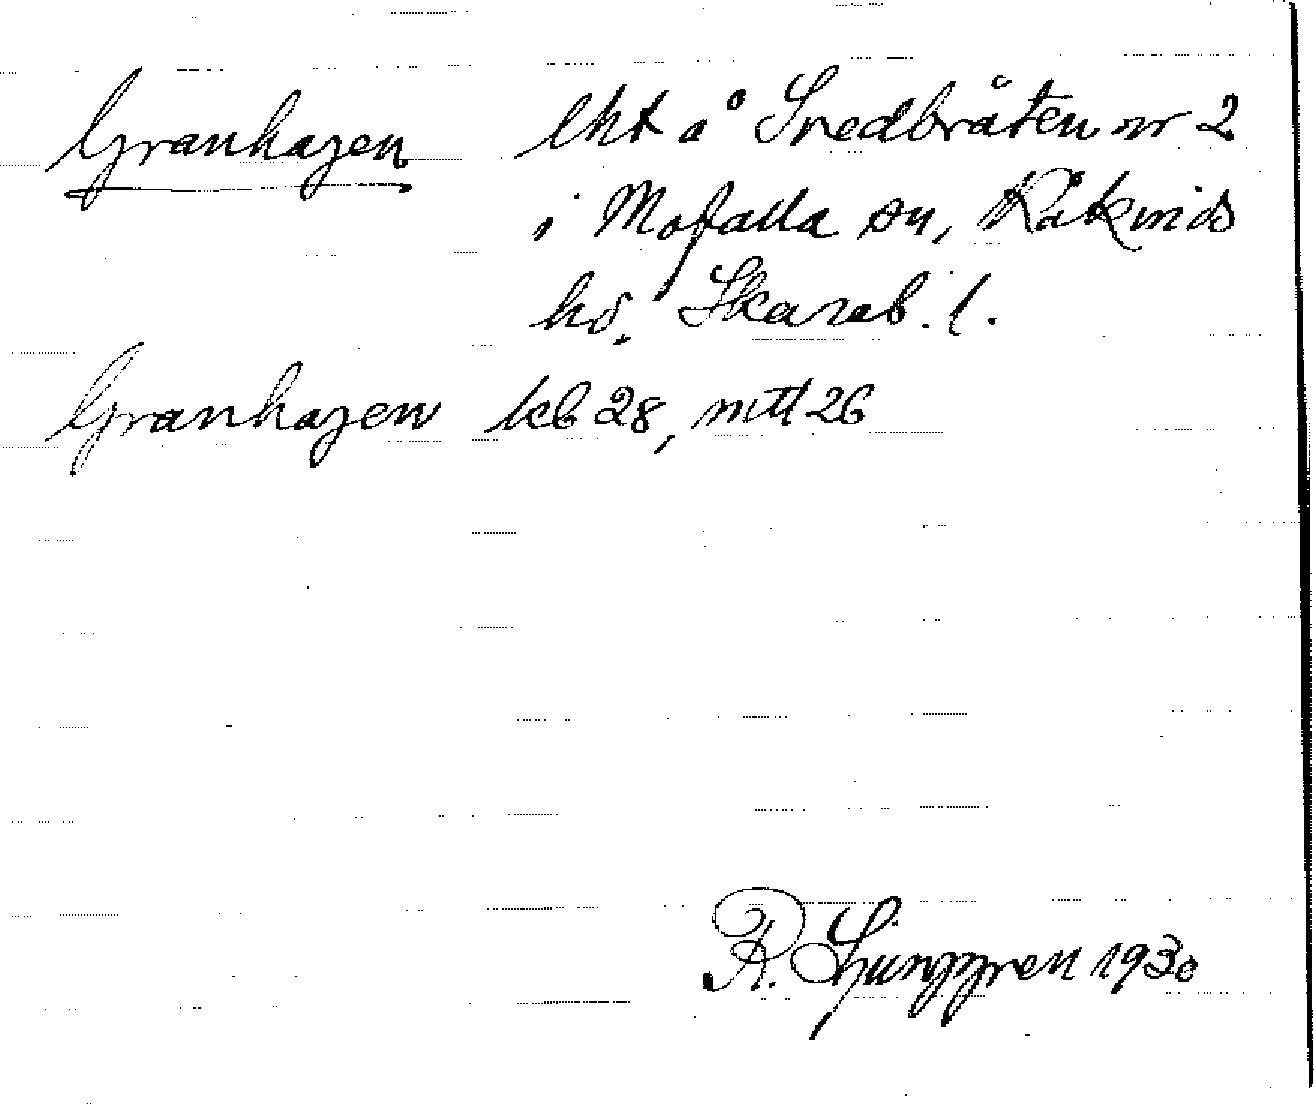 Granhagen lht å Svedbråten nr 2
i Mofalla sn, Kåkinds
hd. Skarab. l.
Granhagen kb 28, mtl 26
R. Ljunggren 1930